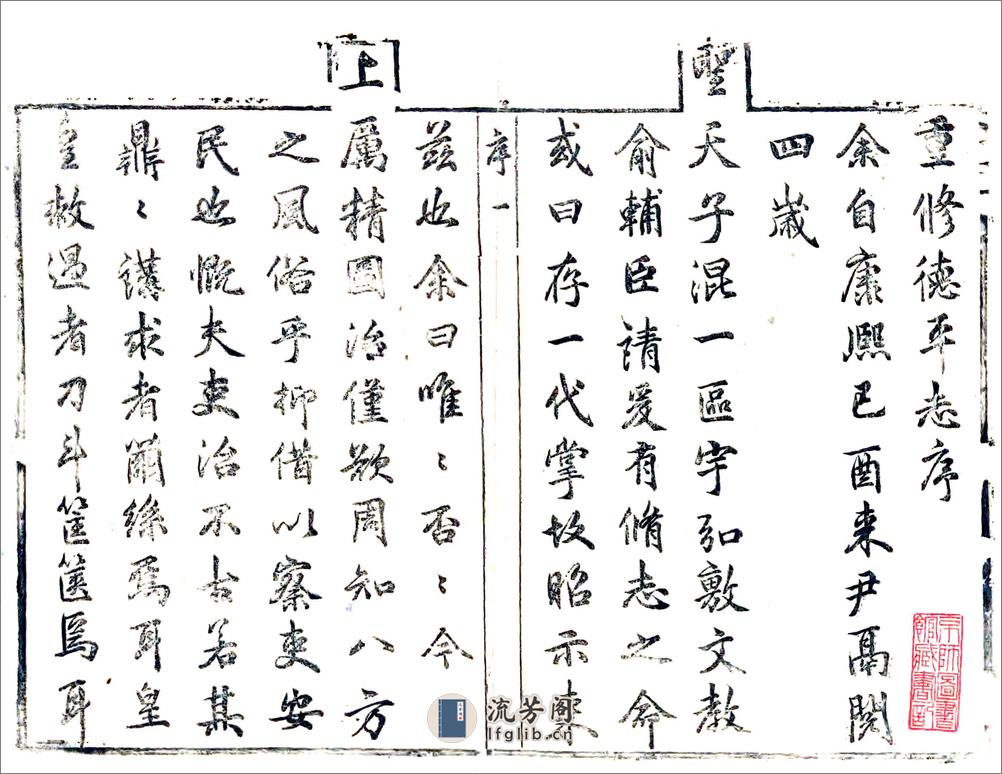 重修德平志序
余自康熙己酉来尹鬲閱
四歲
聖
天子混一區宇弘敷文教
俞輔臣請爰有脩志之命
或曰存一代掌故昭示来
序一
茲也余曰唯〻否〻今
上
厲精圖治僅欲周知八方
之風俗乎抑借以察吏安
民也慨夫吏治不古若某
鼎〻謀求者繭絲焉耳皇
皇救過者刀斗筐篋焉耳
流芳阁
lfglib.cn